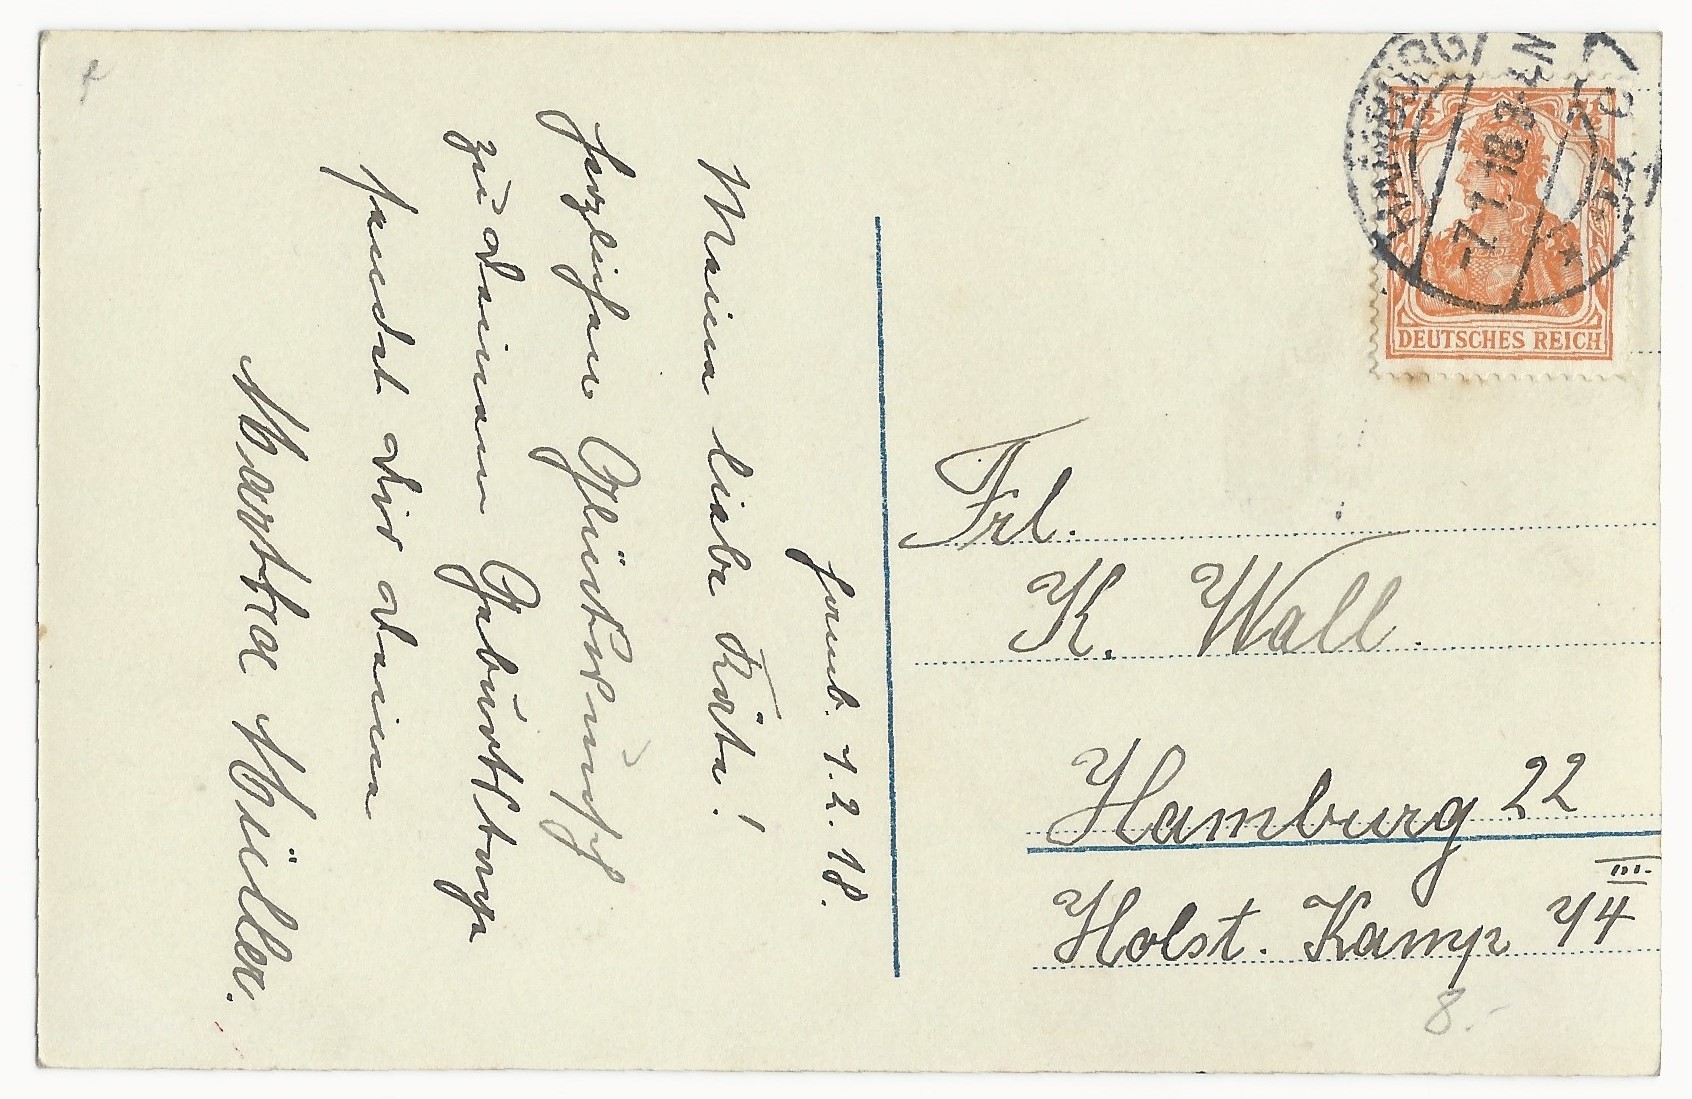 Hamb. 7.2.18.
Meine liebe Käte!
Herzlichen Glückwunsch
zu deinem Geburtstage
sendet dir deine
Martha Müller.
HAMBURG
-7.1.18.3-4N
7½ 7½
DEUTSCHES REICH
Frl.
K. Wall.
Hamburg 22
Holst. Kamp 74 III.
8.-